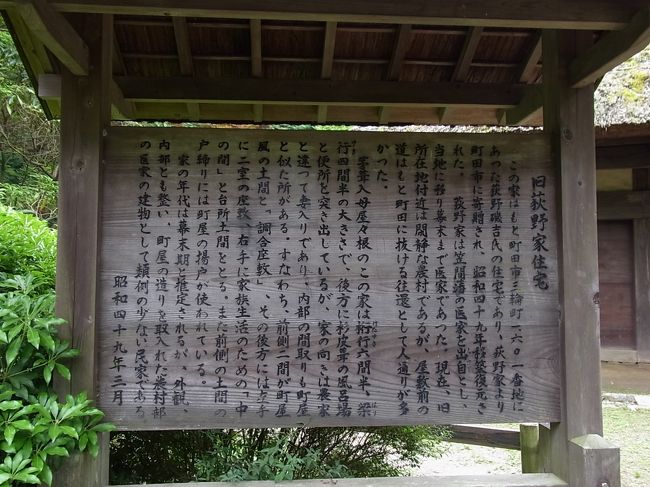 旧荻野家住宅
この家はもと町田市三輪町一、六〇一番地に
あった荻野磯吉氏の住宅であり、荻野家より
町田市に寄贈され、昭和四十九年移築復元さ
れた。　荻野家は笠間藩の医家を出自とし、
当地に移り幕末まで医家であった。現在、旧
所在地付近は閑静な農村であるが、屋敷前の
道はもと町田に抜ける往還として人通りが多
かった。
茅葺入母屋々根のこの家は桁行六間半、梁
行四間半の大きさで、後方に杉皮葺の風呂場
と便所を突き出しているが、家の向きは農家
と違って妻入りであり、内部の間取りも町屋
と似た所がある。すなわち、前側二間が町屋
風の土間と「調合座敷」、その後方には左手
に二室の座敷、右手に家族生活のための「中
の間」と台所土間とる。また前側の土間の
戸締りには町屋の揚戸が使われている。
家の年代は幕末期と推定されるが、外観、
内部とも整い、町屋の造りを取入れた農村部
の医家の建物として類例の少ない民家である
昭和四十九年三月